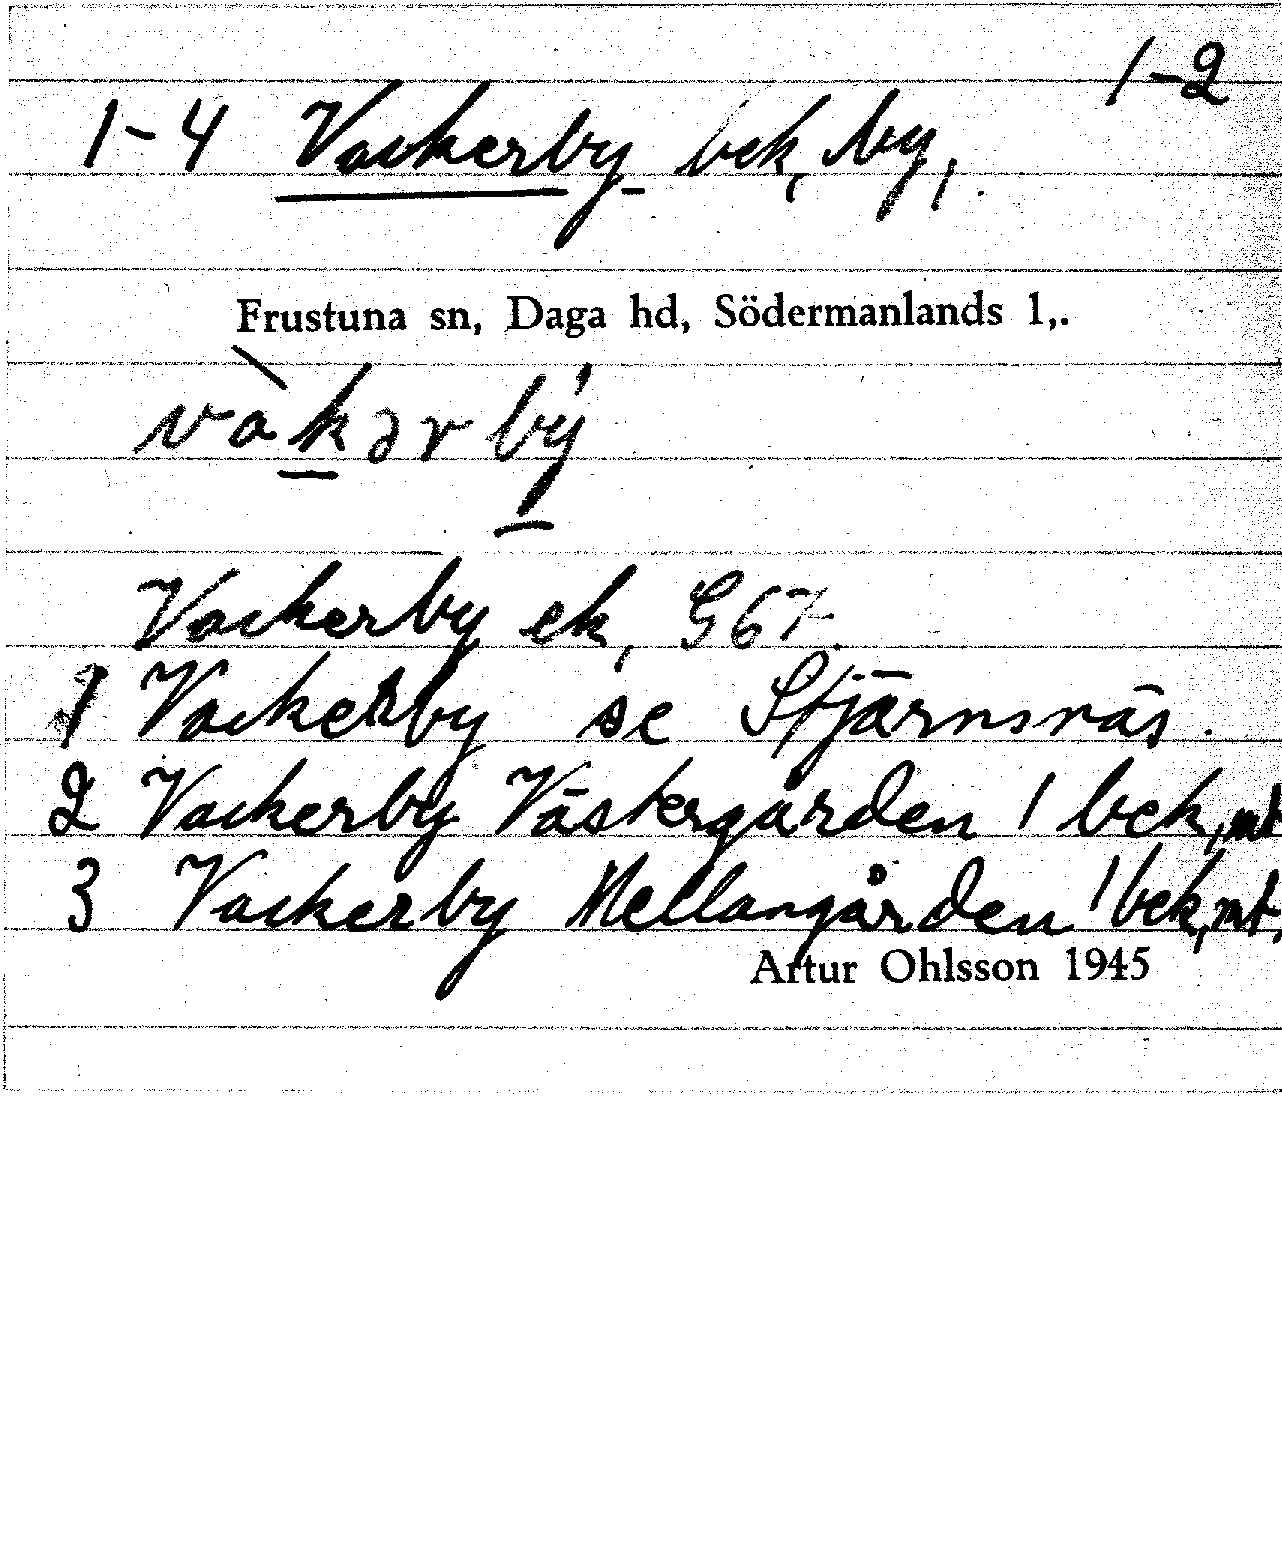 1-2
1-4 Vackerby bek, by,.
Frustuna sn, Daga hd, Södermanlands l,.
vàkərbý
Vackerby ek, G67.
1 Vackerby se Stjärnsnäs.
2 Vackerby Västergården 1 bek, mt
3 Vackerby Mellangården 1 bek, mt.
Artur Ohlsson 1945